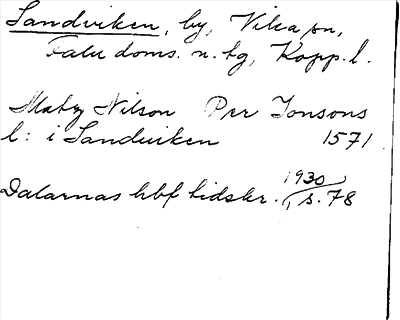 Sandviken, by, Vika sn,
Falu doms. n. tg, Kopp. l.
Matz Nilson Per Jonsons
l: i Sandviken 1571
Dalarnas hbf tidskr. 1930, s. 78